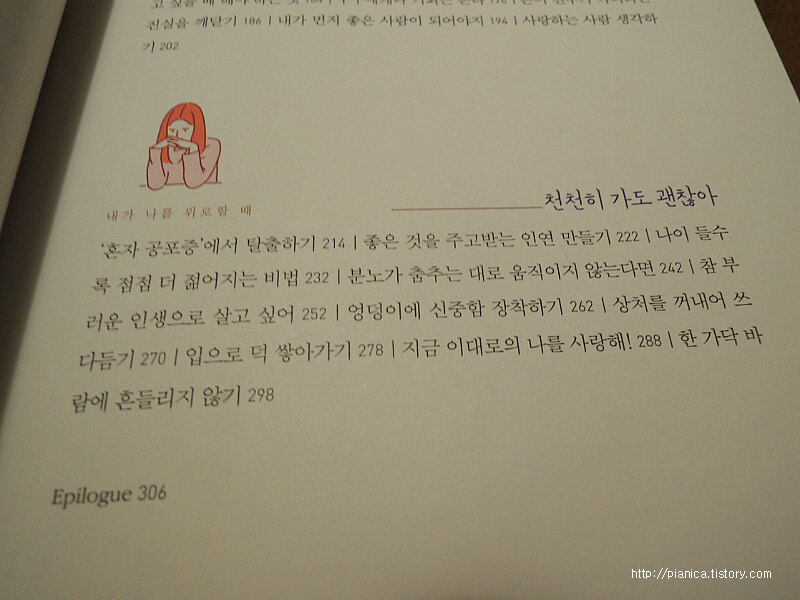 진실을 깨닫기 186 | 내가 먼저 좋은 사람이 되어야지 194 | 사랑하는 사람 생각하
기 202
내가 나를 위로할 때
천천히 가도 괜찮아
'혼자 공포증'에서 탈출하기 214 | 좋은 것을 주고받는 인연 만들기 222 | 나이 들수
록 점점 더 젊어지는 비법 232 | 분노가 춤추는 대로 움직이지 않는다면 242 | 참 부
러운 인생으로 살고 싶어 252 | 엉덩이에 신중함 장착하기 262 | 상처를 꺼내어 쓰
다듬기 270 | 입으로 덕 쌓아가기 278 | 지금 이대로의 나를 사랑해! 288 | 한 가닥 바
람에 흔들리지 않기 298
Epilogue 306
http://pianica.tistory.com